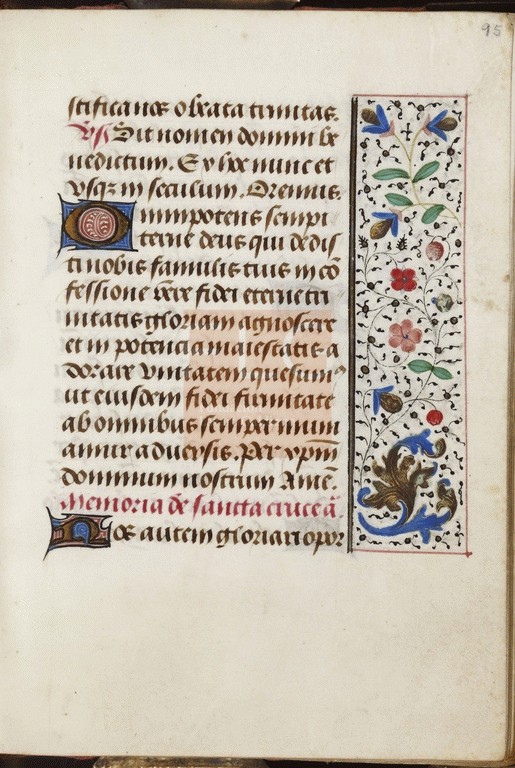 95
stificanos o beata trinitas.
Vs Sit nomen domini be
nedictum. Ex hoc nunc et
vsqz in seculum. Oremus.
Omnipotens sempi
terne deus qui dedis
ti nobis famulis tuis in cō
fessione vere fidei eterne tri
nitatis gloriam agnoscere
et in potencia maiestatis a
dorare vnitatem quesumꝰ
ut eiusdem fidei firmitate
ab omnibus semper muni
amur aduersis. Per xp̄m
dominum nostrum Amē.
Memoria de sancta cruce ā
Nos autem gloriari opor